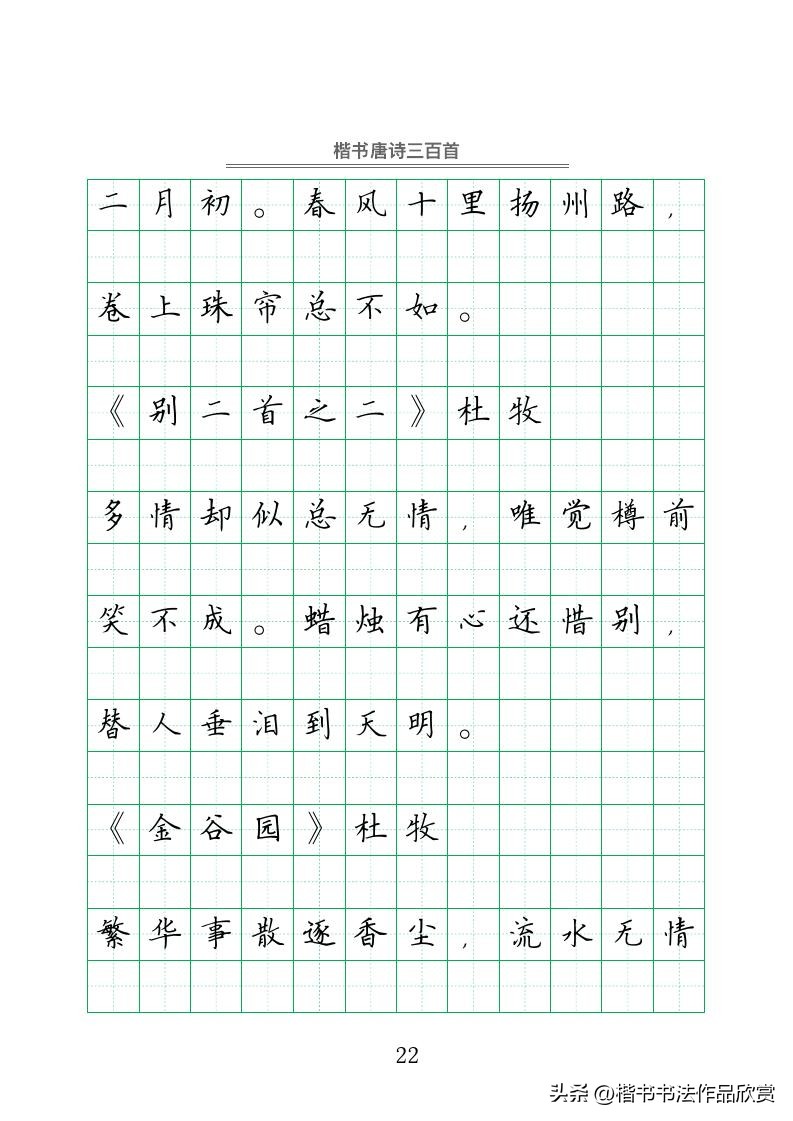 楷书唐诗三百首
二月初。春风十里扬州路，
卷上珠帘总不如。
《别二首之二》杜牧
多情却似总无情，唯觉樽前
笑不成。蜡烛有心还惜别，
替人垂泪到天明。
《金谷园》杜牧
繁华事散逐香尘，流水无情
22
头条 @楷书书法作品欣赏